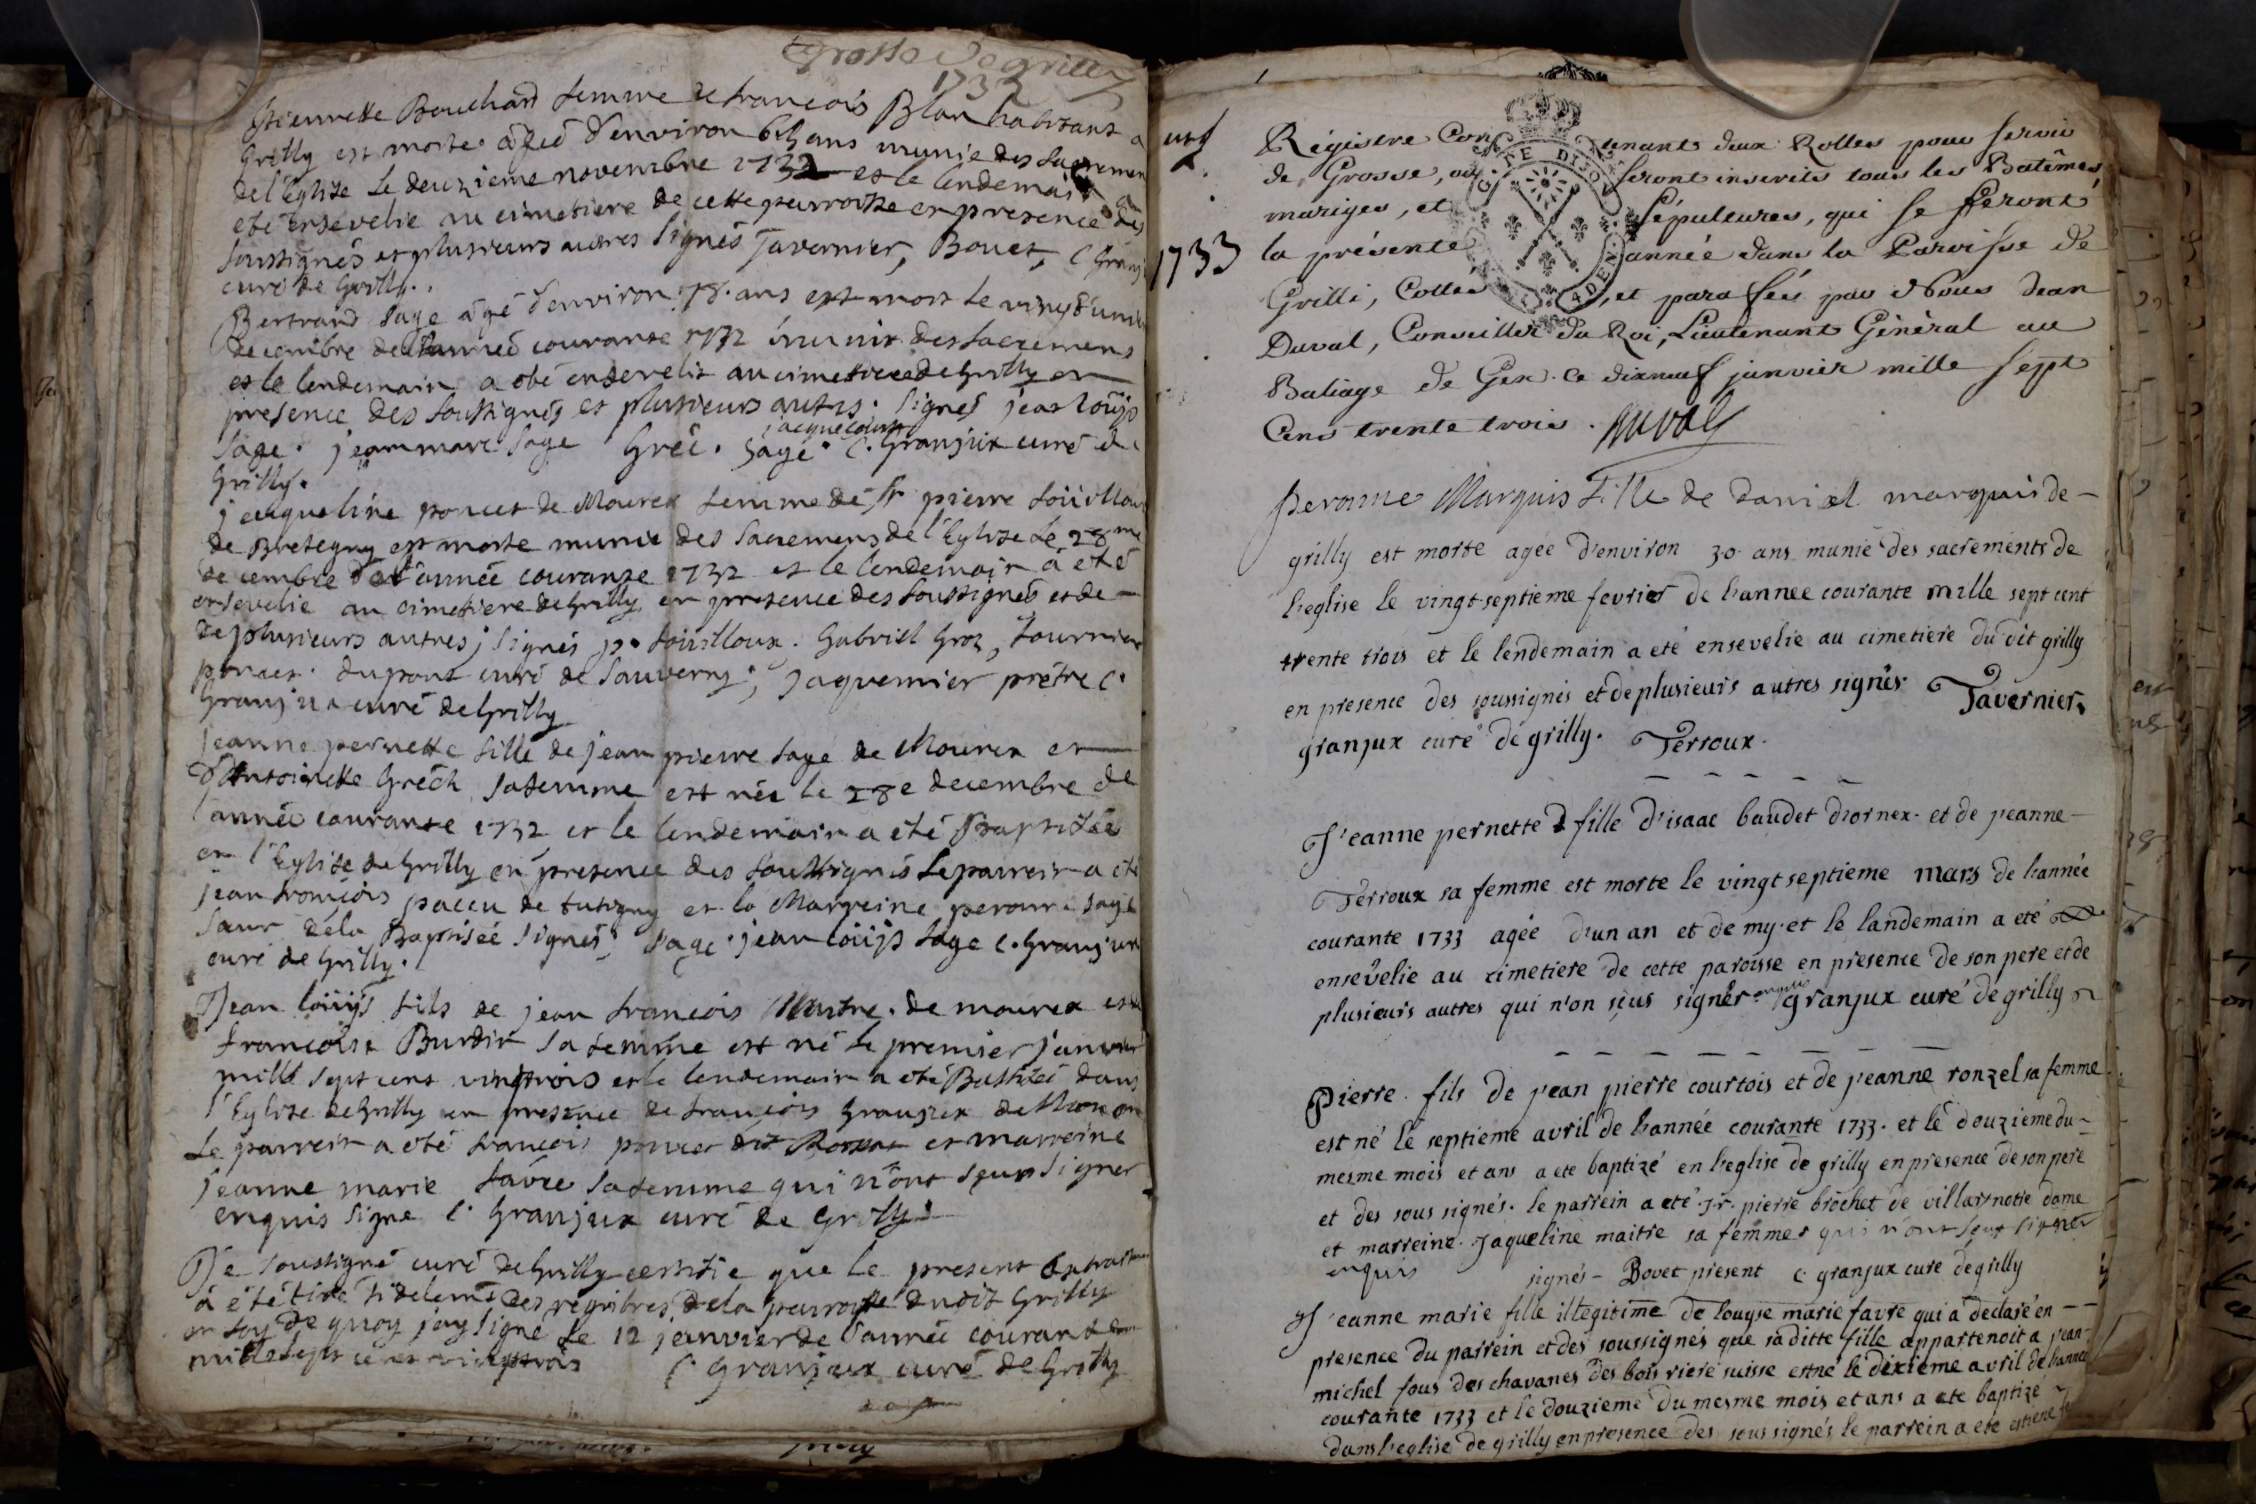 Grosse de Grilly
1732
Pieurette Bouchard femme de francois Blan habitant a
Grilly est morte agée d'environ ans munie des Sacremen
de l'Eglise le deuzieme novembre 1732 et le lendemain a
eté ensevelie au cimetiere de cette parroisse en presence des
soussignés et plusieurs autres Signés Tavernier, Bovet, C Granj
curé de Grilly.
Bertrand Sage agé d'environ 78. ans est mort le vingt unie
decembre de l'année courante 1732 munir des Sacremens
et le lendemain a eté ensevelit au cimetiere de Grilly en
presence des soussignés et plusieurs autres. signés jean loüis
jacquecourt
Sage. jeanmarc Sage Gréc. Sage. C. Granjux curé de
Grilly.
jacqueline poncet de Mourex femme de Sr pierre Soüilloux
de Bretegny est morte munie des Sacremens de l'Eglise le 28me
decembre de l'année couranse 1732 et le lendemain a eté
ensevelie au cimetiere de Grilly en presence des soussignés et de
de plusieurs autres, signés p. Soüilloux. Gabriel Groz, Tournier
poncet. dupont curé de Sauverny; Jaquemier prétre C.
Granjux curé de Grilly
Jeanne pernette fille de jean pierre Sage de Mourex et
d'Antoinette Gréch sa femme est née le 28e decembre de
l'année courante 1732 et le lendemain a eté Baptisée
en l'Eglise de Grilly en presence des soussignés Le parrein a eté
jean françois paccu de tutigny et la Marreine peronne Sage
Sœur de la Baptisée signés; Sage. jean loüis Sage C. Granjux
curé de Grilly.
Jean loüis fils de jean francois Maitre. de mourex et
francoise Burdin sa femme est né le premier janvier
mille sept cent vintrois et le lendemain a eté Batisé dans
l'Eglise de Grilly en presence de françois Granjux de
Le parrein a eté françois poncet dit et marreine
jeanne marie favre sa femme qui n'ont sçus signer
enquis signe C. Granjux curé de Grilly.
Je soussigné curé de Grilly certifie que le present Extrait
a été tiré fidelemt des régitres de la parroisse dudit Grilly
en foy de quoy jay signé le 12 janvier de l'année courante
mille sept cent vingtrois C. Granjux curé de Grilly
1733
Régistre Contenant deux Rolles pour servir
de Grosse, où seront inscrits tous les Batêmes
mariges, et Sépultures, qui se feront
la présente année dans la Paroisse de
Grilli, Cottés, et parafés par Nous Jean
Duval, Conseiller du Roi, Lieutenant Général au
Baliage de Gex. ce dixneuf janvier mille sept
Cens trente trois. Duval
G. TE DIJON
4 DEN.
Peronne Marquis Fille de Daniel marquis de
grilly est morte agée d'environ 30 ans munie des sacrements de
l'eglise le vingt-septieme fevrier de l'annee courante mille sept cent
trente trois et le lendemain a eté ensevelie au cimetiere du dit grilly
en presence des soussignés et de plusieurs autres signés Tavernier,
granjux curé de grilly. Terroux.
Jeanne pernette fille d'isaac baudet d'ornex. et de jeanne
Terroux sa femme est morte le vingt septieme mars de l'année
courante 1733 agée d'un an et de my. et le landemain a eté
ensevelie au cimetiere de cette paroisse en presence de son pere et de
plusieurs autres qui n'on sçus signer enquis granjux curé de grilly
Pierre. fils de jean pierre courtois et de jeanne ronzel sa femme
est né le septieme avril de l'année courante 1733. et le douzieme du
mesme mois et ans a ete baptizé en l'eglise de grilly en presence de son pere
et des sous signés. le parrein a eté Sr. pierre brochet de villars notre dame
et marreine Jaqueline maitre sa femme qui n'ont sçus signer
enquis signés - Bovet present C. granjux curé de grilly
Jeanne marie fille illegitime de louyse marie favre qui a declaré en
presence du parrein et des soussignés que sa ditte fille appartenoit a jean
michel fous des chavanes des bois riere suisse est né le dixieme avril de l'annee
courante 1733 et le douzieme du mesme mois et ans a ete baptizé
dans l'eglise de grilly en presence des sous signés, le parrein a ete estiene